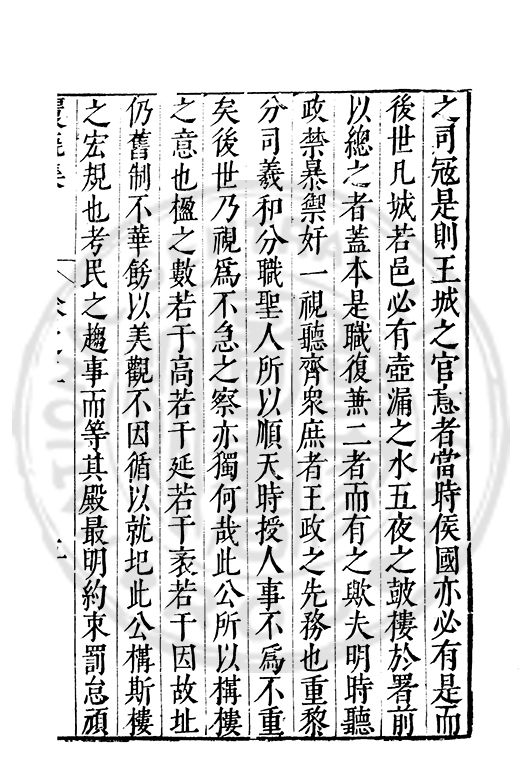 之司冦是則王城之官意者當時侯國亦必有是而
後世凡城若邑必有壺漏之水五夜之鼓樓於署前
以總之者葢本是職復兼二者而有之歟夫明時聽
政禁暴禦奸一視聽齊衆庶者王政之先務也重黎
分司羲和分職聖人所以順天時授人事不爲不重
矣後世乃視爲不急之察亦獨何哉此公所以構樓
之意也楹之數若干高若干延若干袤若干因故址
仍舊制不華餙以美觀不因循以就圮此公構斯樓
之宏規也考民之趨事而等其殿最明約束罰怠頑